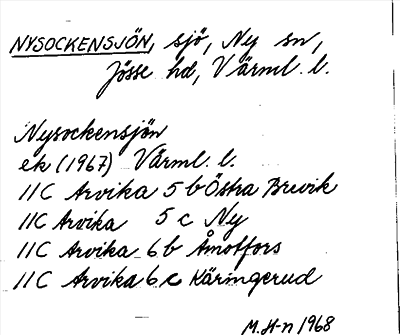 NYSOCKENSJÖN, sjö, Ny sn,
Jösse hd, Värml. l.
Nysockensjön
ek (1967) Värml. l.
11C Arvika 5 b Östra Brevik
11C Arvika 5 c Ny
11C Arvika 6 b Åmotfors
11C Arvika 6 c Käringerud
M.H-n 1968